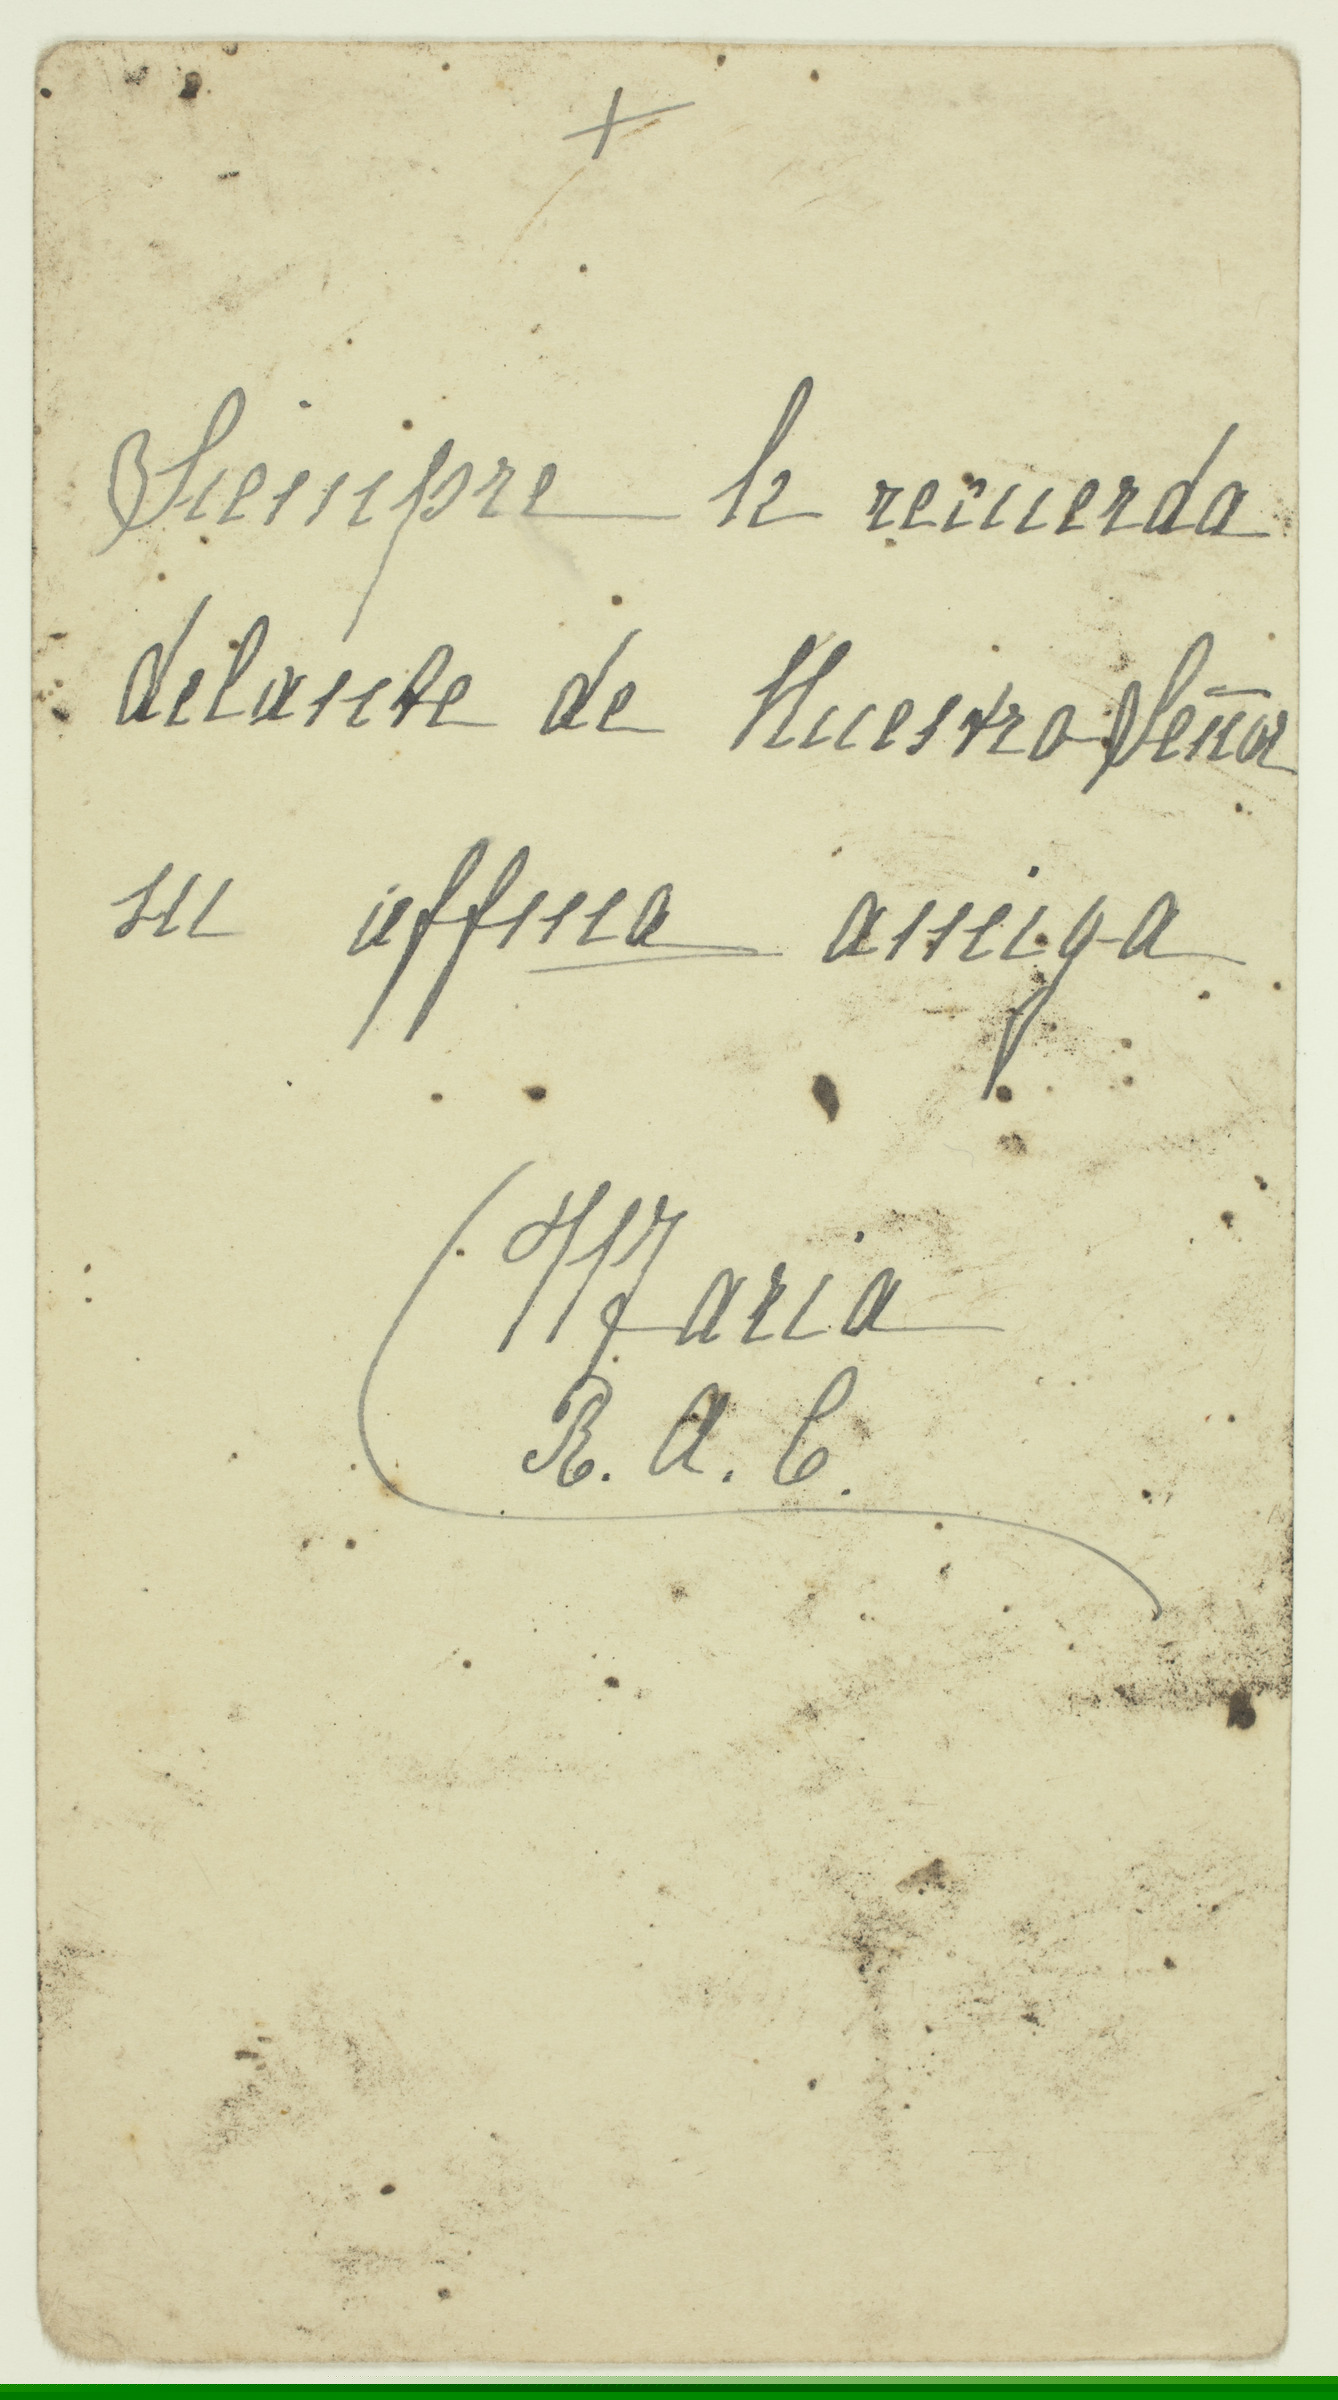 +
Siempre le recuerda
delante de Nuestro Señor
su affma amiga
Maria
R. A. C.